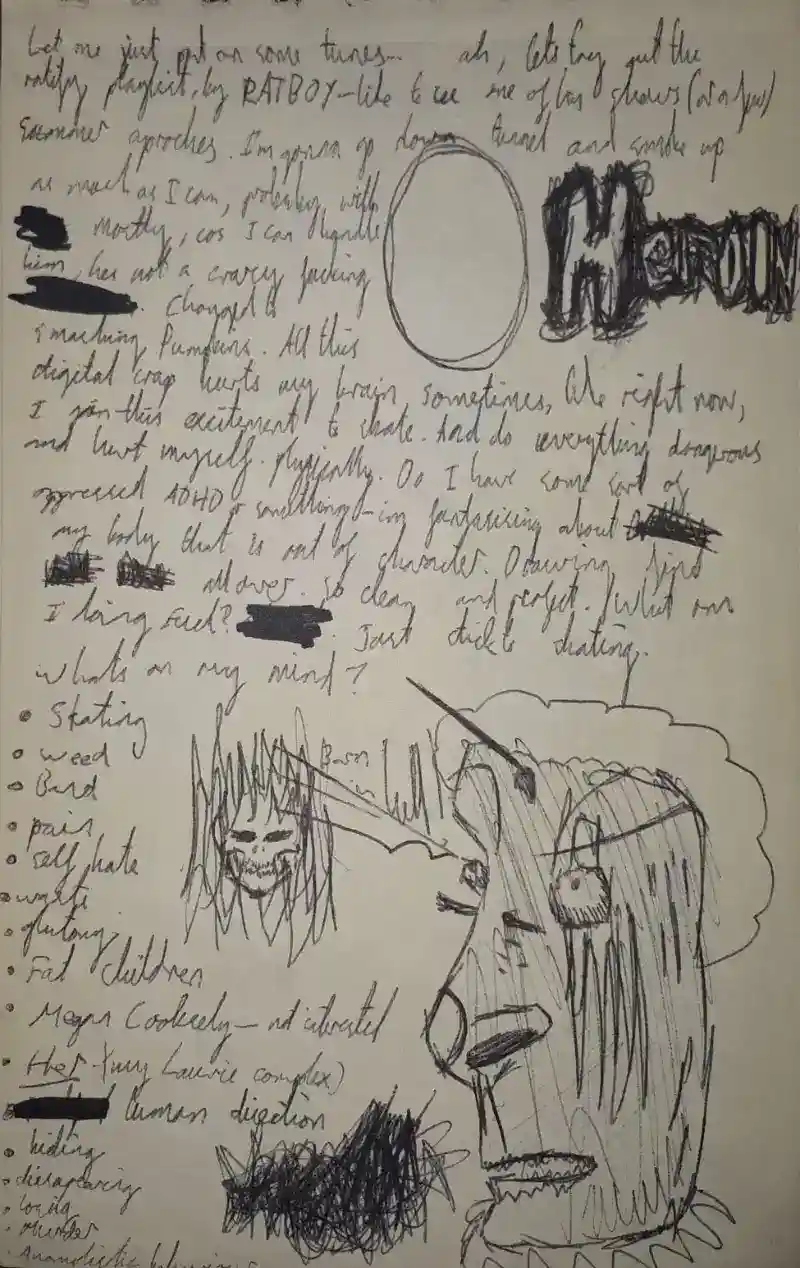 Let me just put on some tunes... ah, lets try out the
ratify playlist, by RATBOY-like to see one of his shows (or a few)
Summer aproches. I'm gonna go down tunnel and smoke up
as much as I can, probably with
mostly, cos I can handle
him, hes not a crazy fucking
. Changed to
smashing Pumpkins. All this
digital crap hurts my brain, sometimes, like right now,
I join this excitement to skate. And do everything dangerous
and hurt myself. physically. Do I have some sort of
oppressed ADHD or something-im fantasising about
my body that is out of character. Drawing, find
all over. So clean and perfect. What am
I being fued? Just stick to skating.
Whats on my mind?
• Skating
• weed
• Bird
• pain
• self hate
• waste
• glutony
• Fat children
• Megan Cooksely - not interested
• Her - (my Laurie complex)
• human direction
• hiding
• dissapearing
• losing
• murder
Burn
in hell
HEROIN